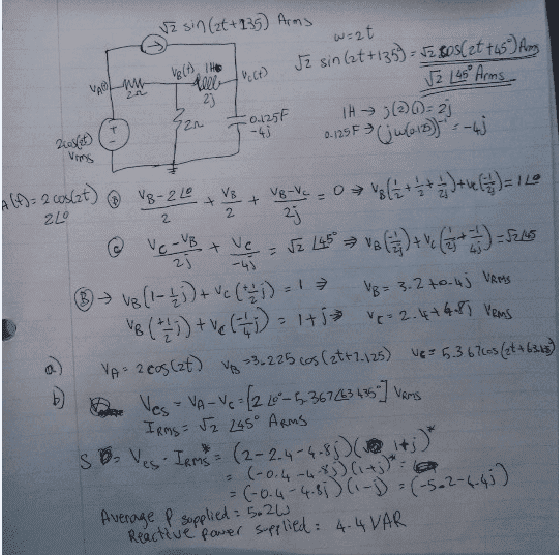 √2 sin(2t+135) Arms
ω=2t
√2 sin(2t+135) = √2 cos(2t+45°) Arms
√2 ∠45° Arms
VA(t)
2Ω
VB(t)
1H
2j
VC(t)
2Ω
0.125F
-4j
1H → j(2)(1) = 2j
0.125F → (jω(0.125))⁻¹ = -4j
2cos(2t)
Vrms
A(t) = 2cos(2t)
2∠0
Ⓑ (VB-2∠0)/2 + VB/2 + (VB-VC)/2j = 0 ⇒ VB(1/2+1/2+1/2j)+VC(-1/2j) = 1∠0
Ⓒ (VC-VB)/2j + VC/-4j = √2 ∠45° ⇒ VB(-1/2j)+VC(1/2j + -1/4j) = √2∠45
Ⓑ → VB(1-1/2j)+VC(+1/2j) = 1 ⇒ VB = 3.2+0.4j VRMS
VB(+1/2j)+VC(-1/4j) = 1+j ⇒ VC = 2.4+4.8j VRMS
a) VA = 2cos(2t) VB = 3.225cos(2t+7.125) VC = 5.367cos(2t+63.435)
b) Vcs = VA-VC = [2∠0°-5.367∠63.435°] VRMS
IRMS = √2 ∠45° ARMS
S = Vcs · IRMS* = (2-2.4-4.8j)(1+j)*
= (-0.4-4.8j)(1+j)*
= (-0.4-4.8j)(1-j) = (-5.2-4.4j)
Average P supplied = 5.2W
Reactive power supplied: 4.4 VAR